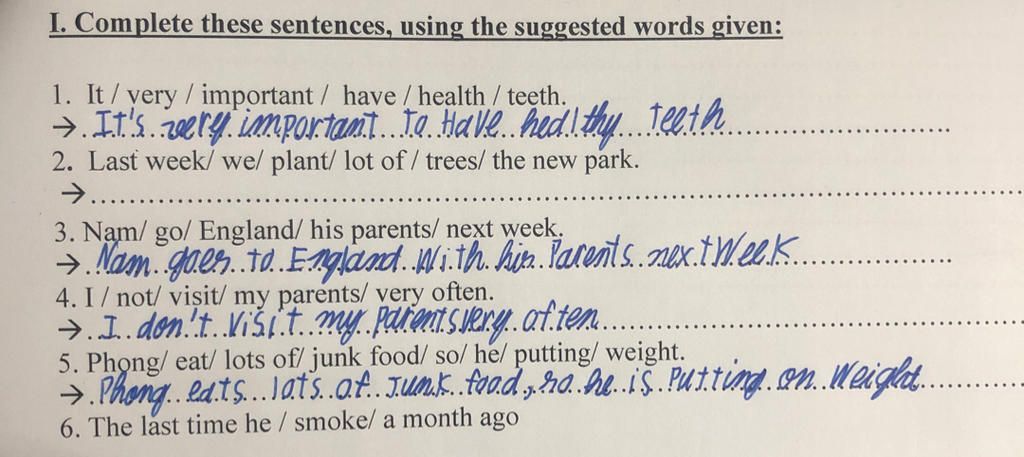 I. Complete these sentences, using the suggested words given:
1. It / very / important / have / health / teeth.
→ It's very important To Have healthy Teeth
2. Last week/ we/ plant/ lot of / trees/ the new park.
→
3. Nam/ go/ England/ his parents/ next week.
→ Nam goes to England With his Parents next Week
4. I / not/ visit/ my parents/ very often.
→ I don't visit my parents very often
5. Phong/ eat/ lots of/ junk food/ so/ he/ putting/ weight.
→ Phong eats lots of Junk food, so he is Putting on Weight
6. The last time he / smoke/ a month ago